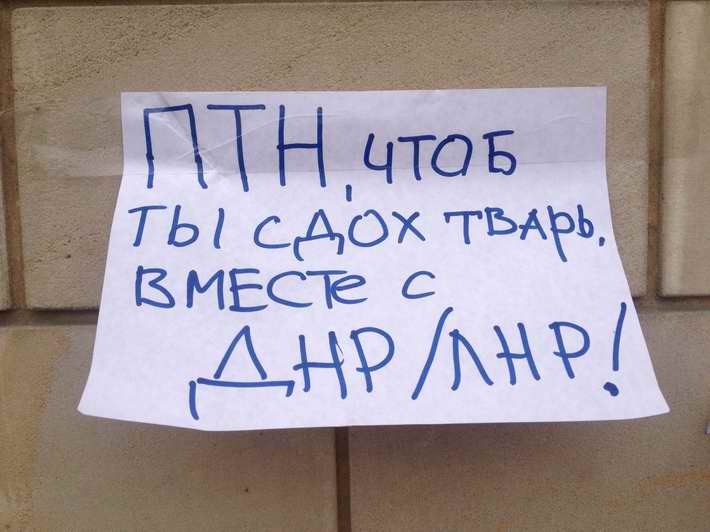 ПТН, чтоб
ты сдох тварь,
вместе с
ДНР/ЛНР!